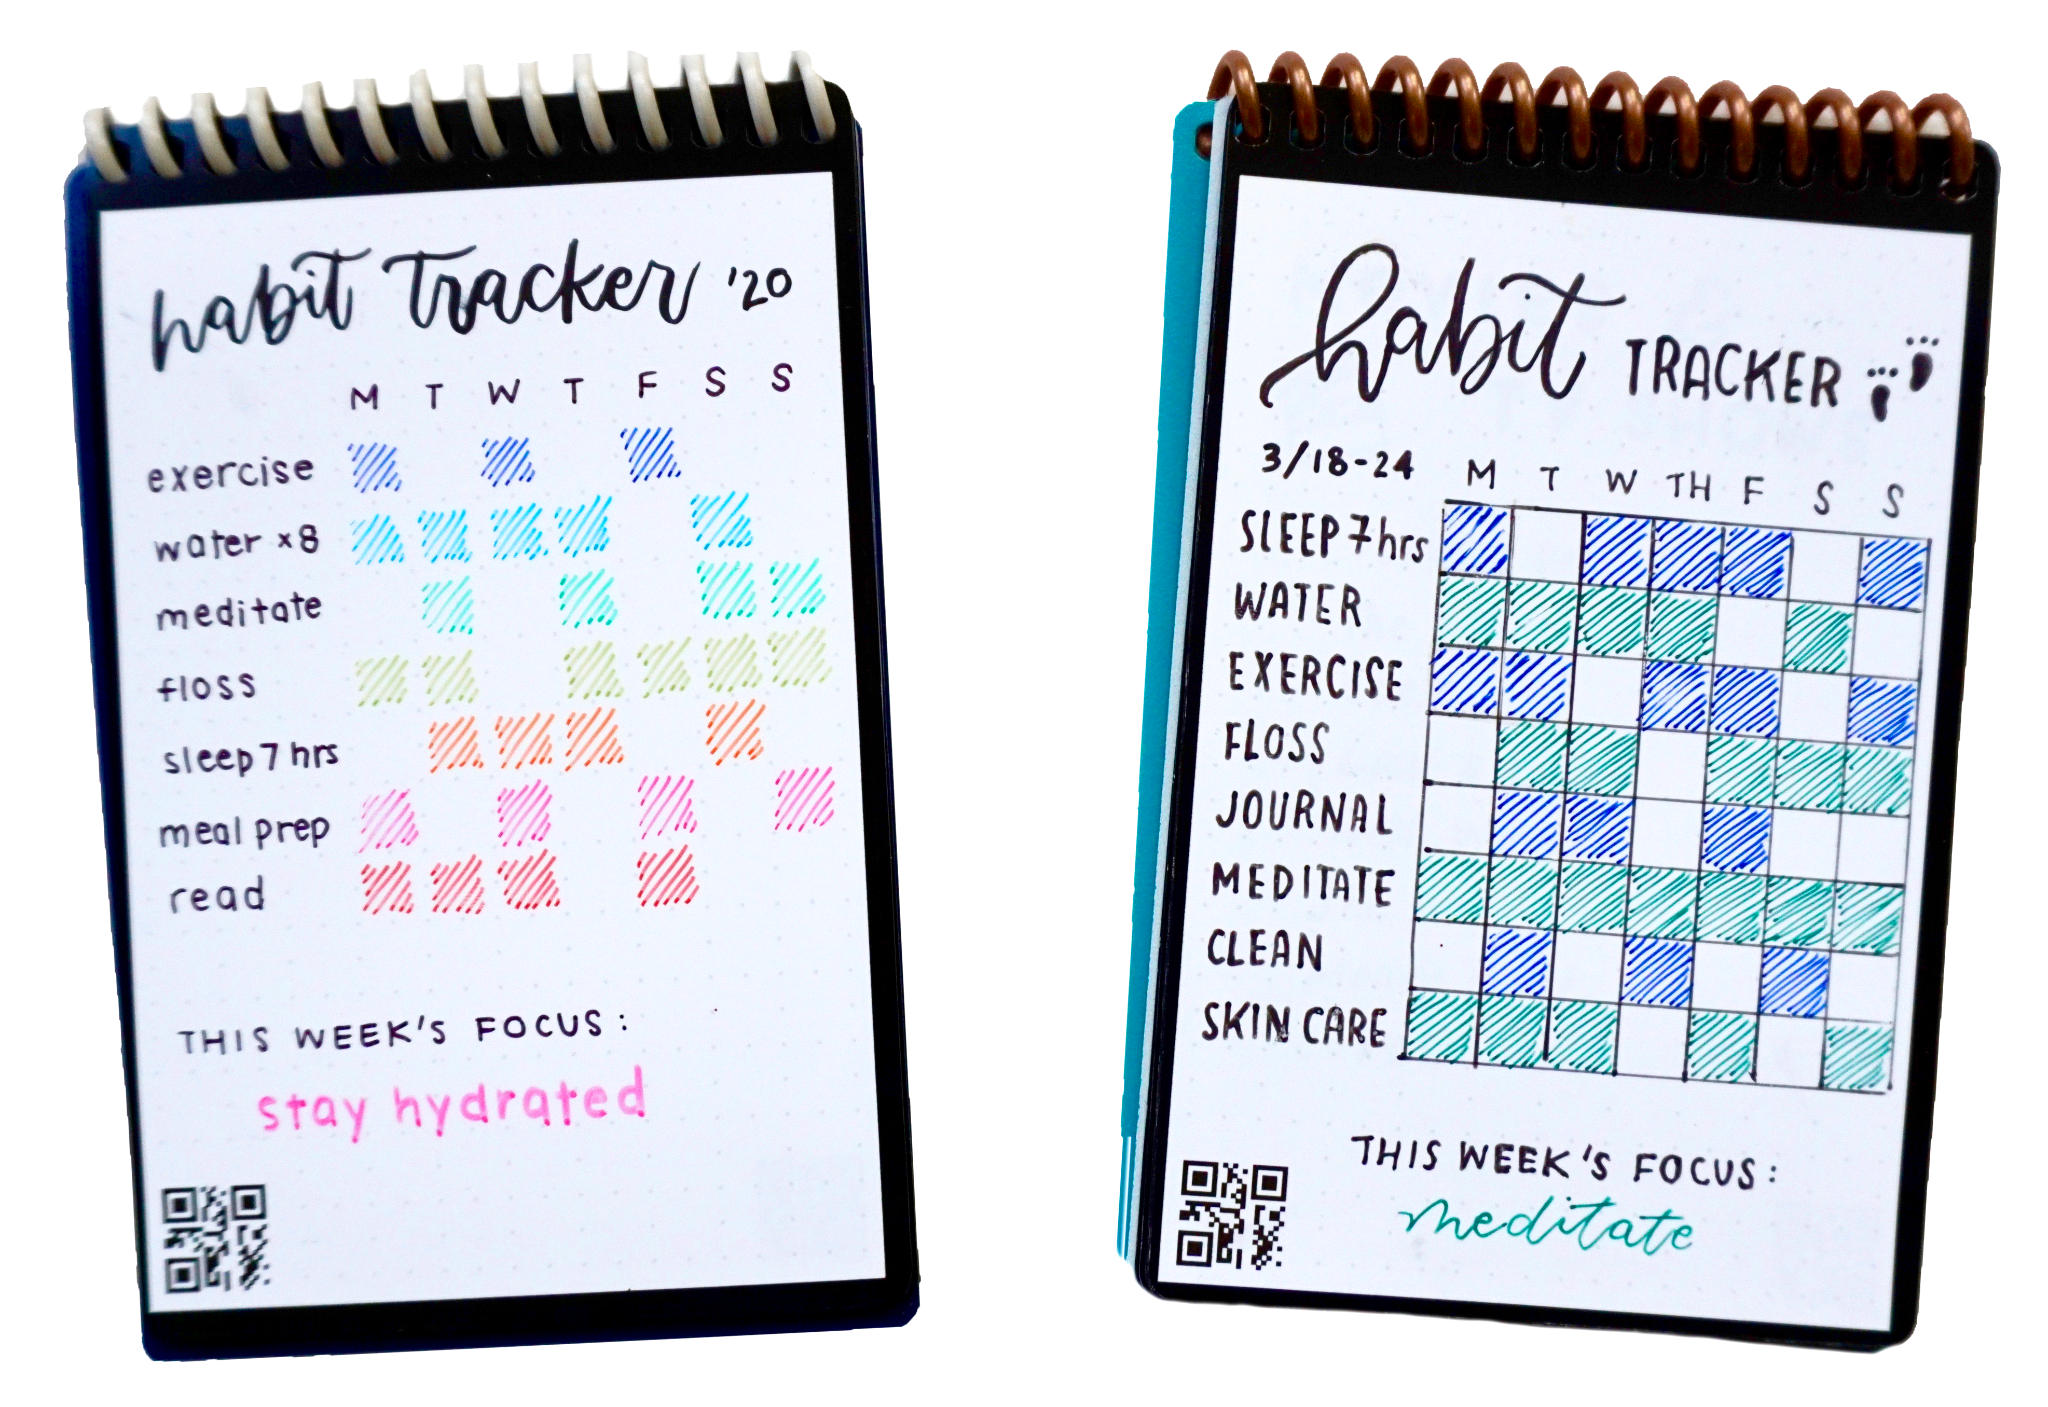 habit tracker '20
M T W T F S S
exercise
water x8
meditate
floss
sleep 7 hrs
meal prep
read
THIS WEEK'S FOCUS:
stay hydrated
habit TRACKER
3/18-24 M T W TH F S S
SLEEP 7hrs
WATER
EXERCISE
FLOSS
JOURNAL
MEDITATE
CLEAN
SKIN CARE
THIS WEEK'S FOCUS:
meditate